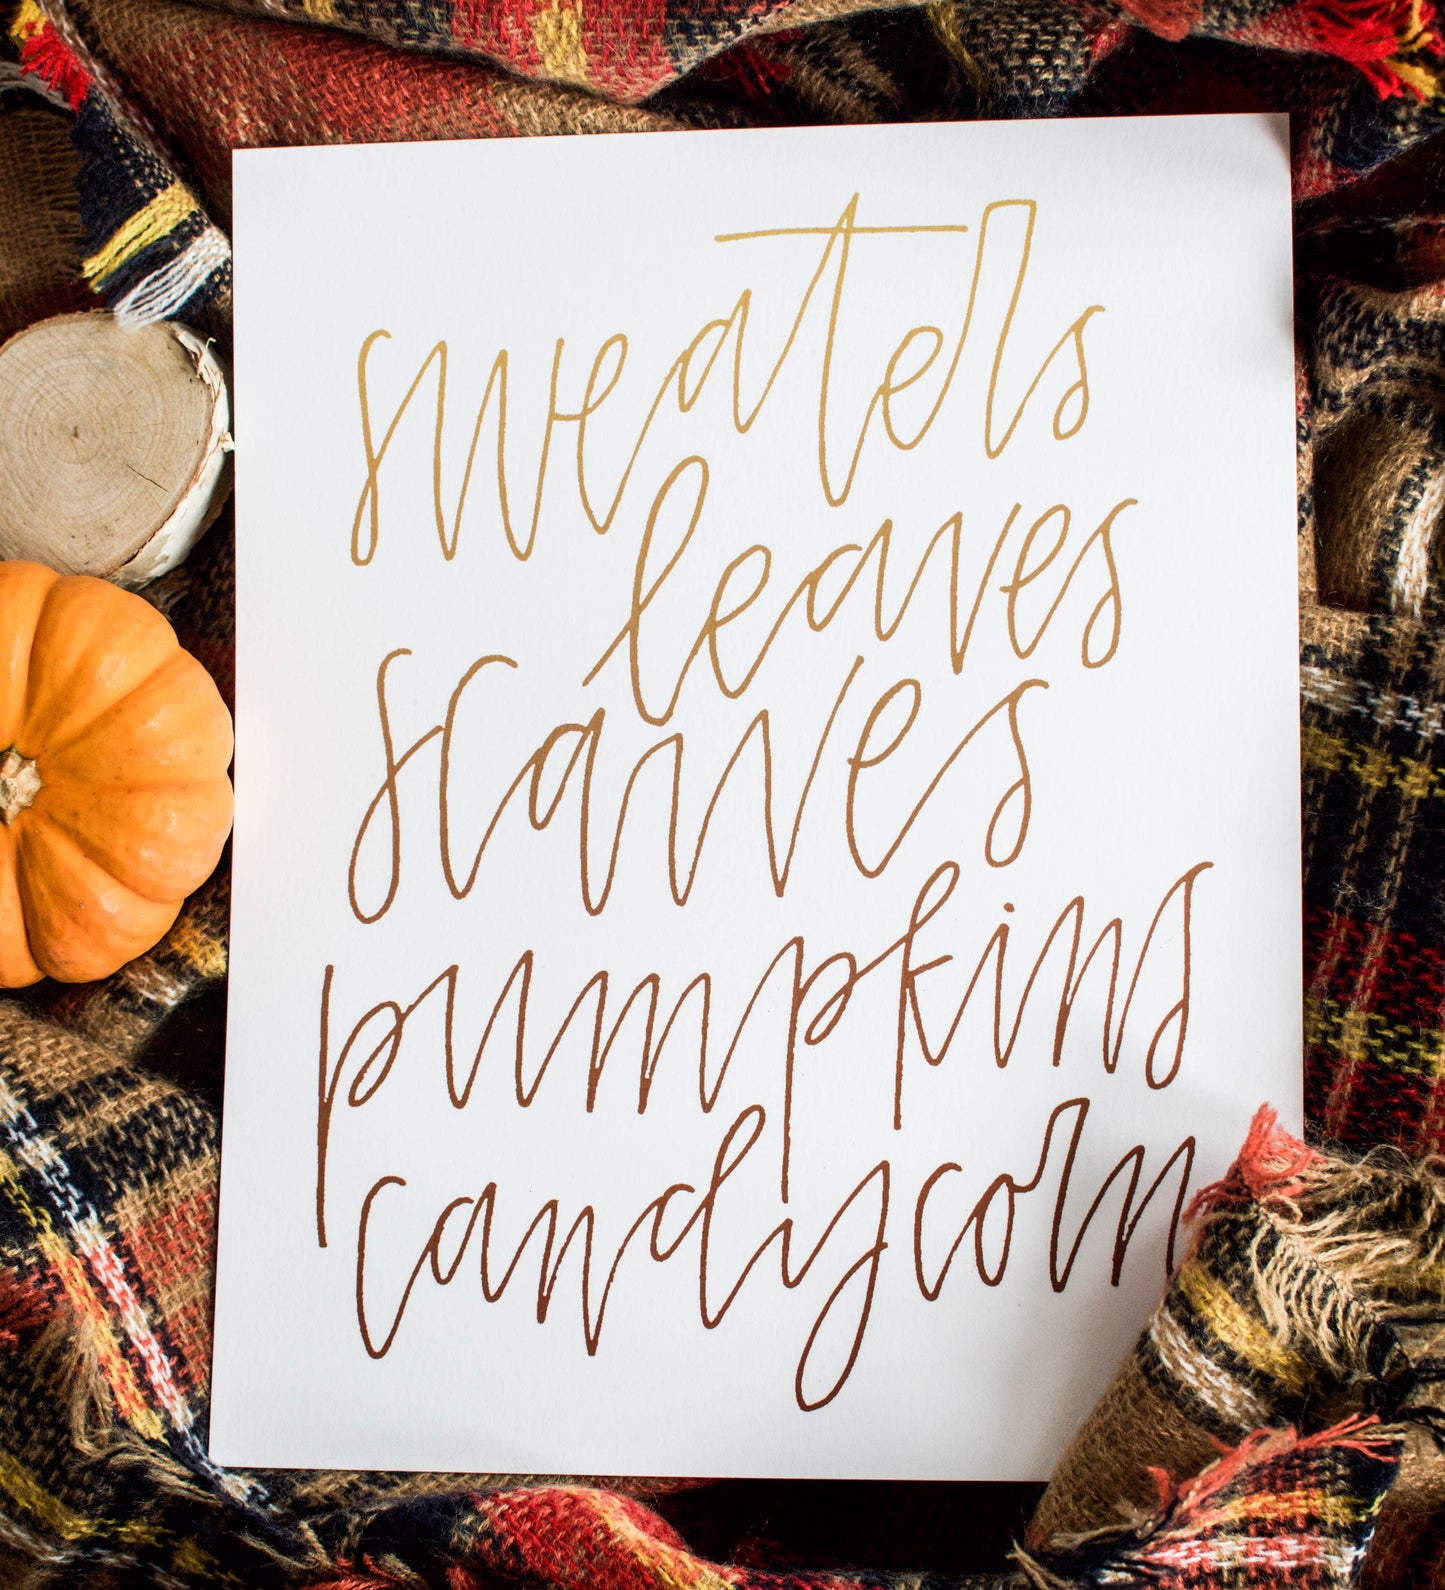 sweaters
leaves
scarves
pumpkins
candy corn